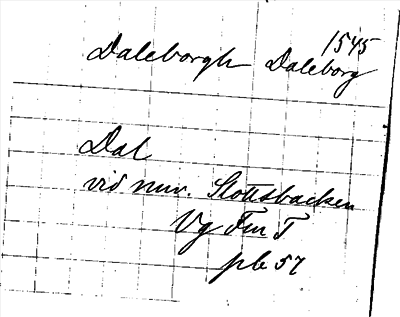 1545
Daleborgh Daleborg
Dal
vid nuv. Slottsbacken
Vg Fm T
pb 57